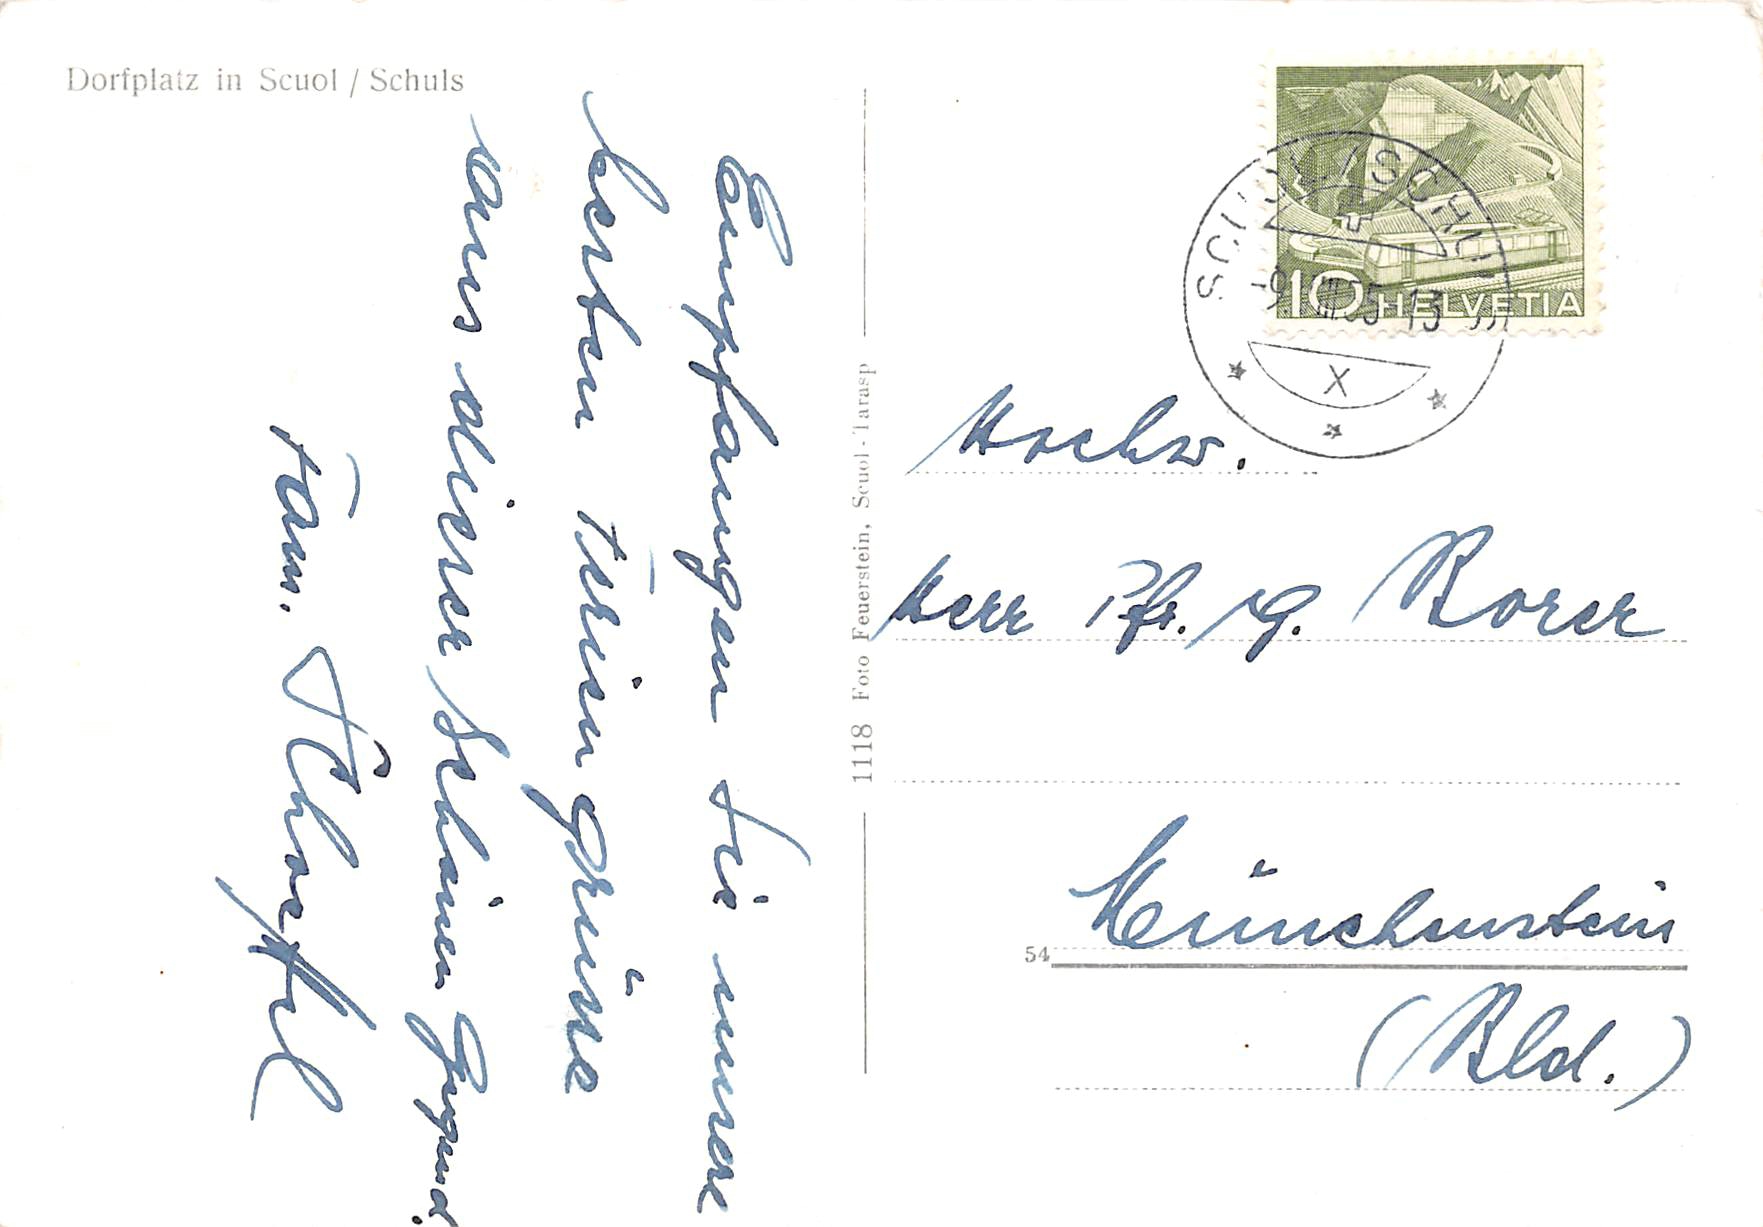 Dorfplatz in Scuol / Schuls
Empfangen Sie unsere
besten Feriengrüsse
aus dieser schönen Gegend.
Fam. Schorffel
1118 Foto Feuerstein, Scuol-Tarasp
10 HELVETIA
SCUOL/SCHULS
-9.VIII.55-13
X
Hochw.
Herr Pfr. G. Rorer
Münchenstein
54
(Bld.)